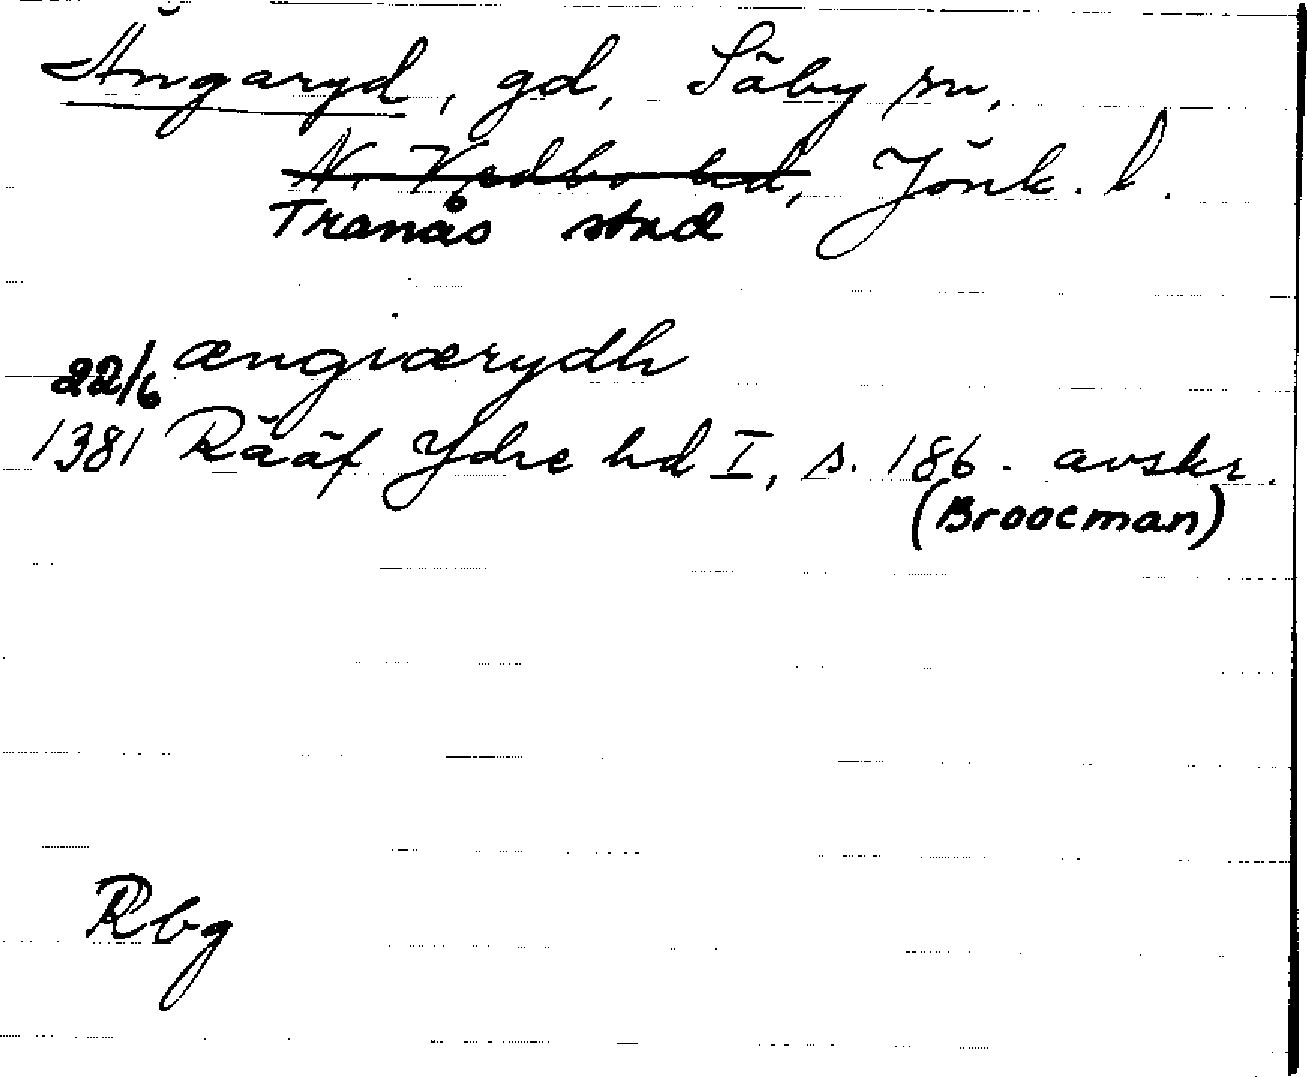 Ängaryd, gd, Säby sn,
N. Vedbo hd, Jönk. l.
Tranås stad
ængiærydh
22/6
1381 Rääf Ydre hd I, s. 186. avskr.
(Broocman)
Rbg